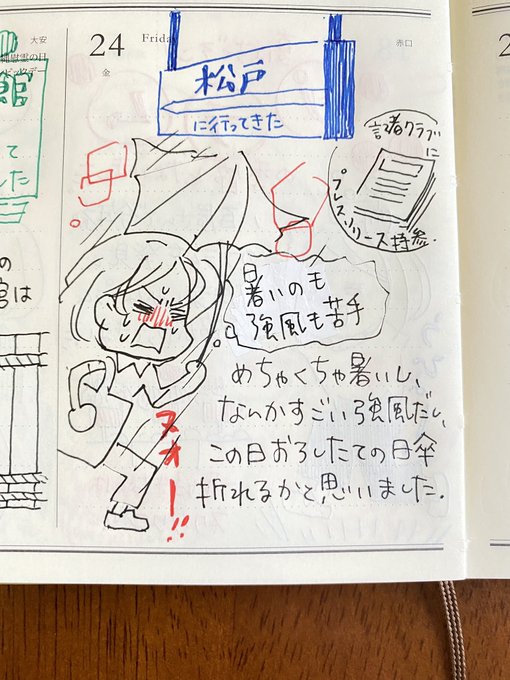 大安
慰霊の日
館
て
した
の
官は
24
Friday
金
赤口
松戸
に行ってきた
記者クラブに
プレスリリース持参.
暑いのも
強風も苦手
ヌオー!!
めちゃくちゃ暑いし、
なんかすごい強風だし、
この日おろしたての日傘
折れるかと思いました.
2